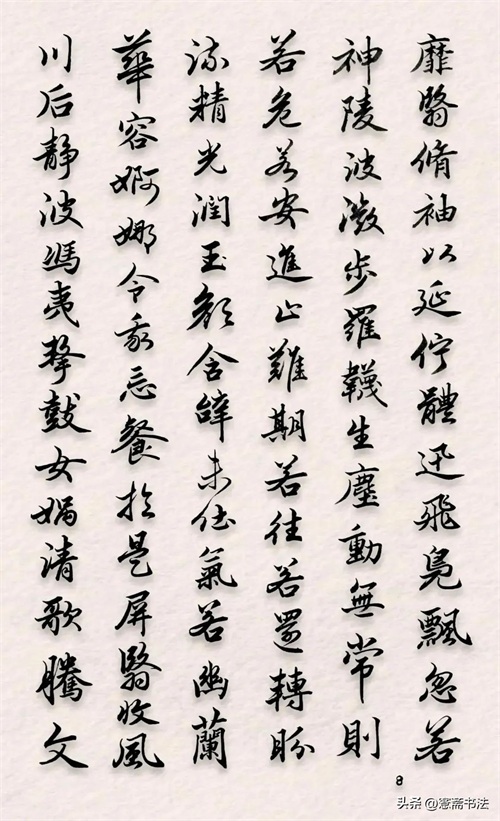 靡翳脩袖以延佇體迅飛鳧飄忽若
神陵波微步羅韈生塵動無常則
若危若安進止難期若往若還轉眄
流精光潤玉顏含辭未吐氣若幽蘭
華容婀娜令我忘餐於是屏翳收風
川后靜波馮夷擊鼓女媧清歌騰文
8
头条 @斋书法